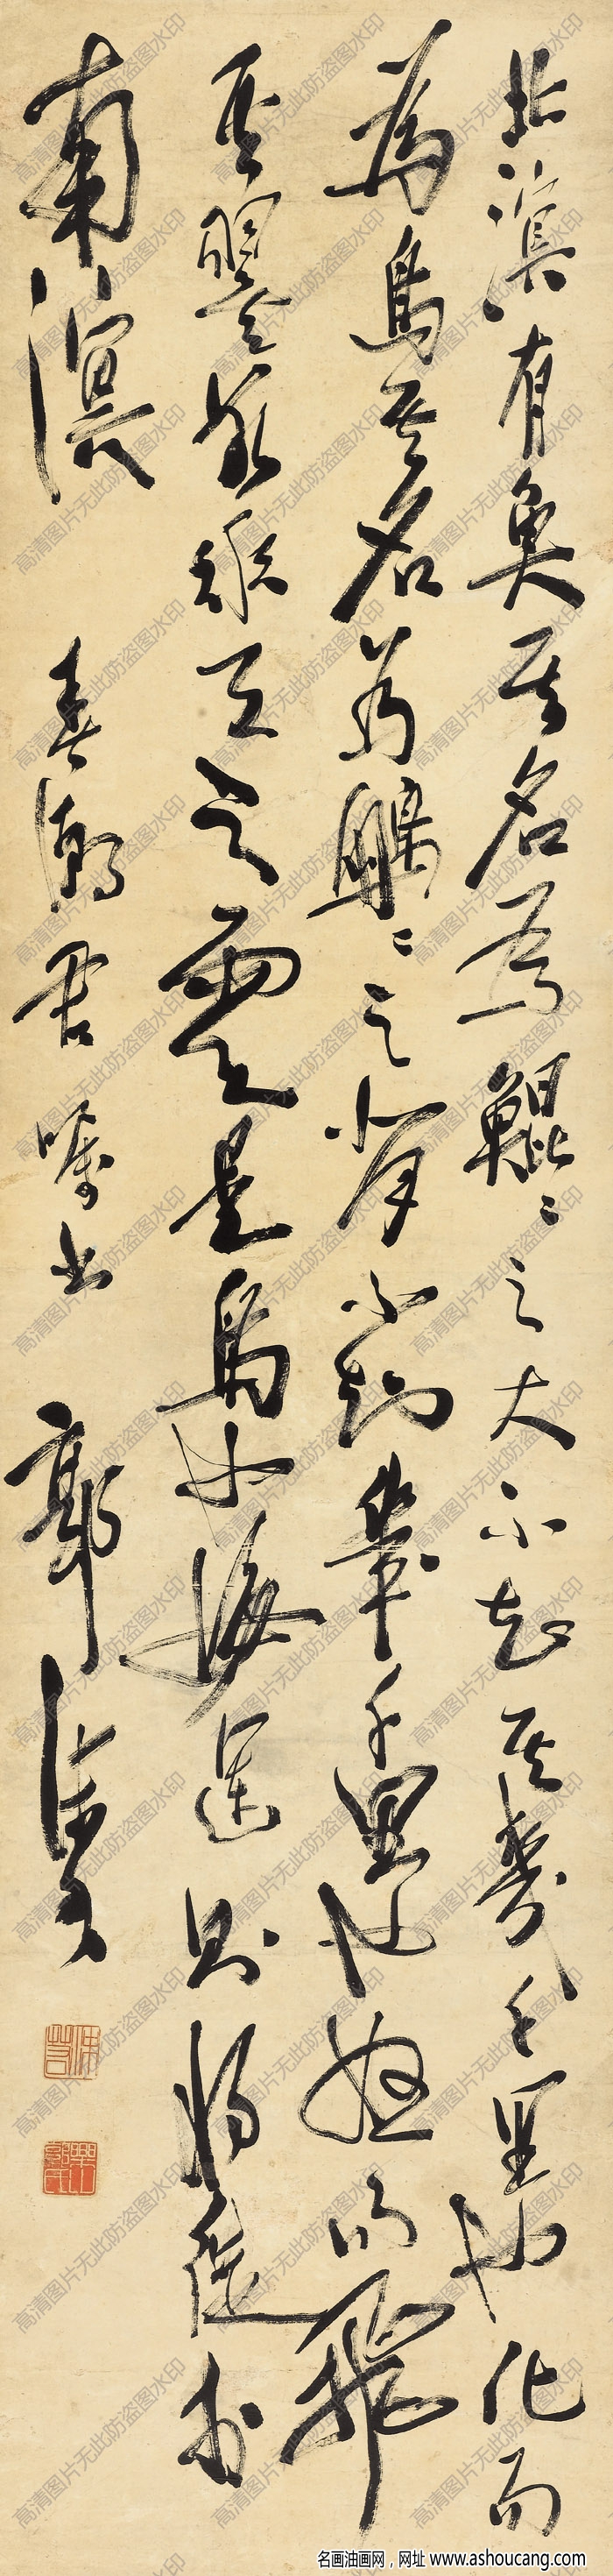 北溟有魚其名為鯤〻之大不知其幾千里也化而
為鳥其名為鵬〻之背不知幾千里也怒而飛
其翼若垂天之雲是鳥也海運則將徙於
南溟
春潮君囑書 郭沫若
沫若
高清图片无此防盗图水印
名画油画网，网址 www.ashoucang.com